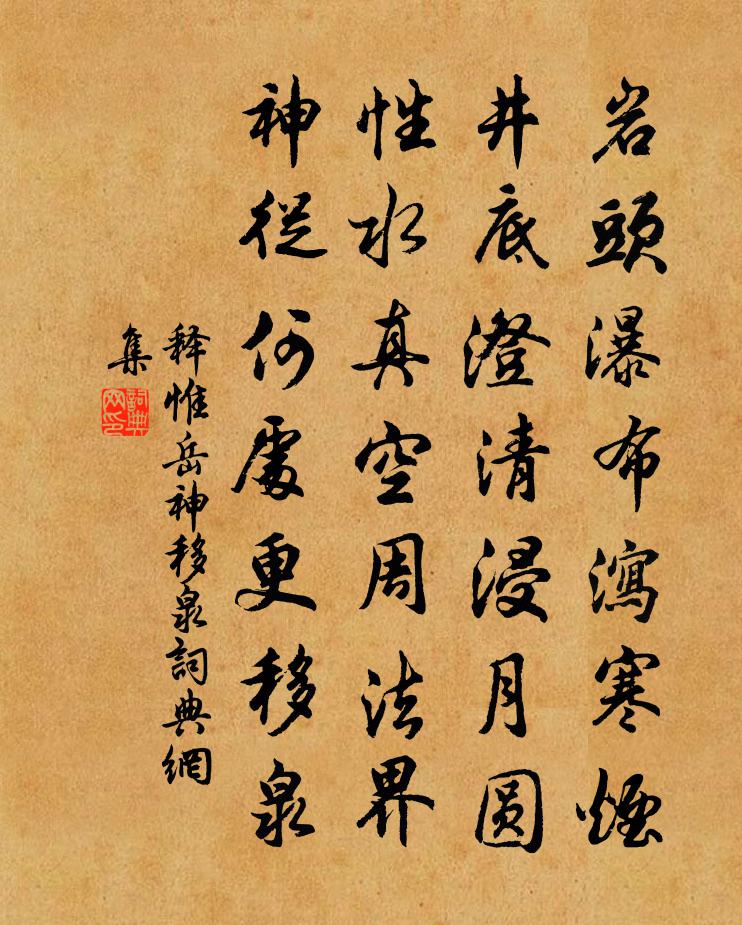 岩頭瀑布瀉寒煙
井底澄清浸月圓
性水真空周法界
神從何處更移泉
释惟岳神移泉詞典網
集
詞典
网印